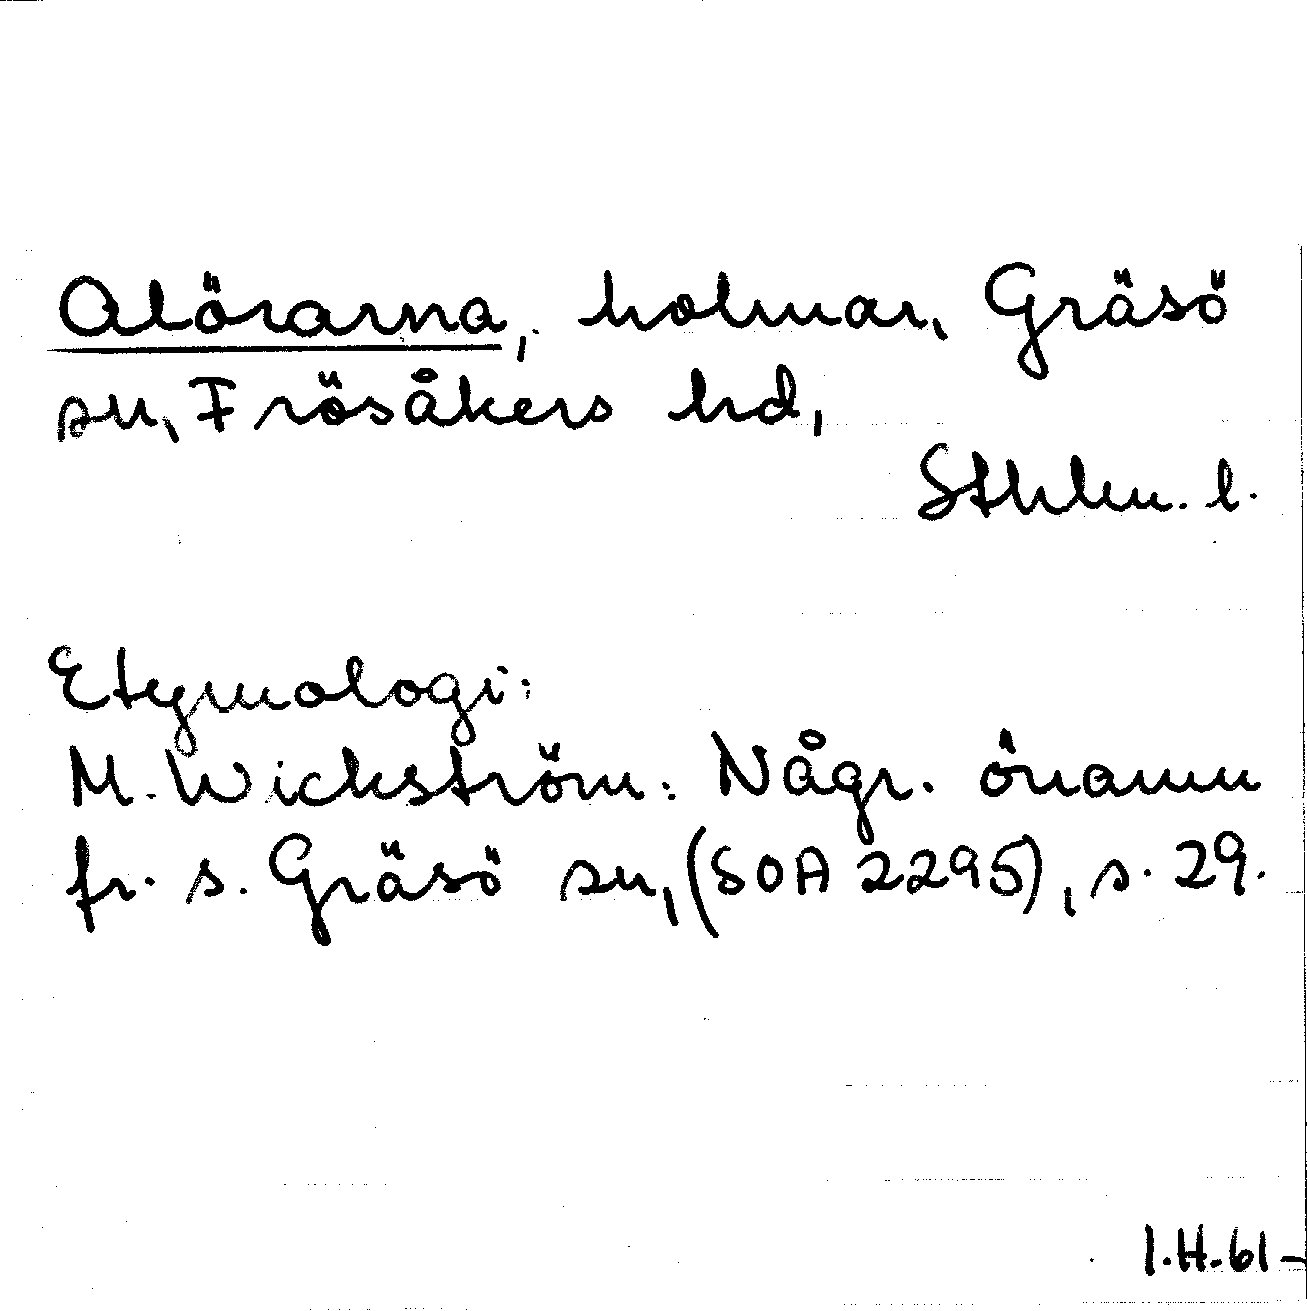 Alörarna, holmar, Gräsö
sn, Frösåkers hd,
Sthlm. l.
Etymologi:
M. Wickström: Någr. önamn
fr. s. Gräsö sn, (SOA 2295), s. 29.
I.H.61-